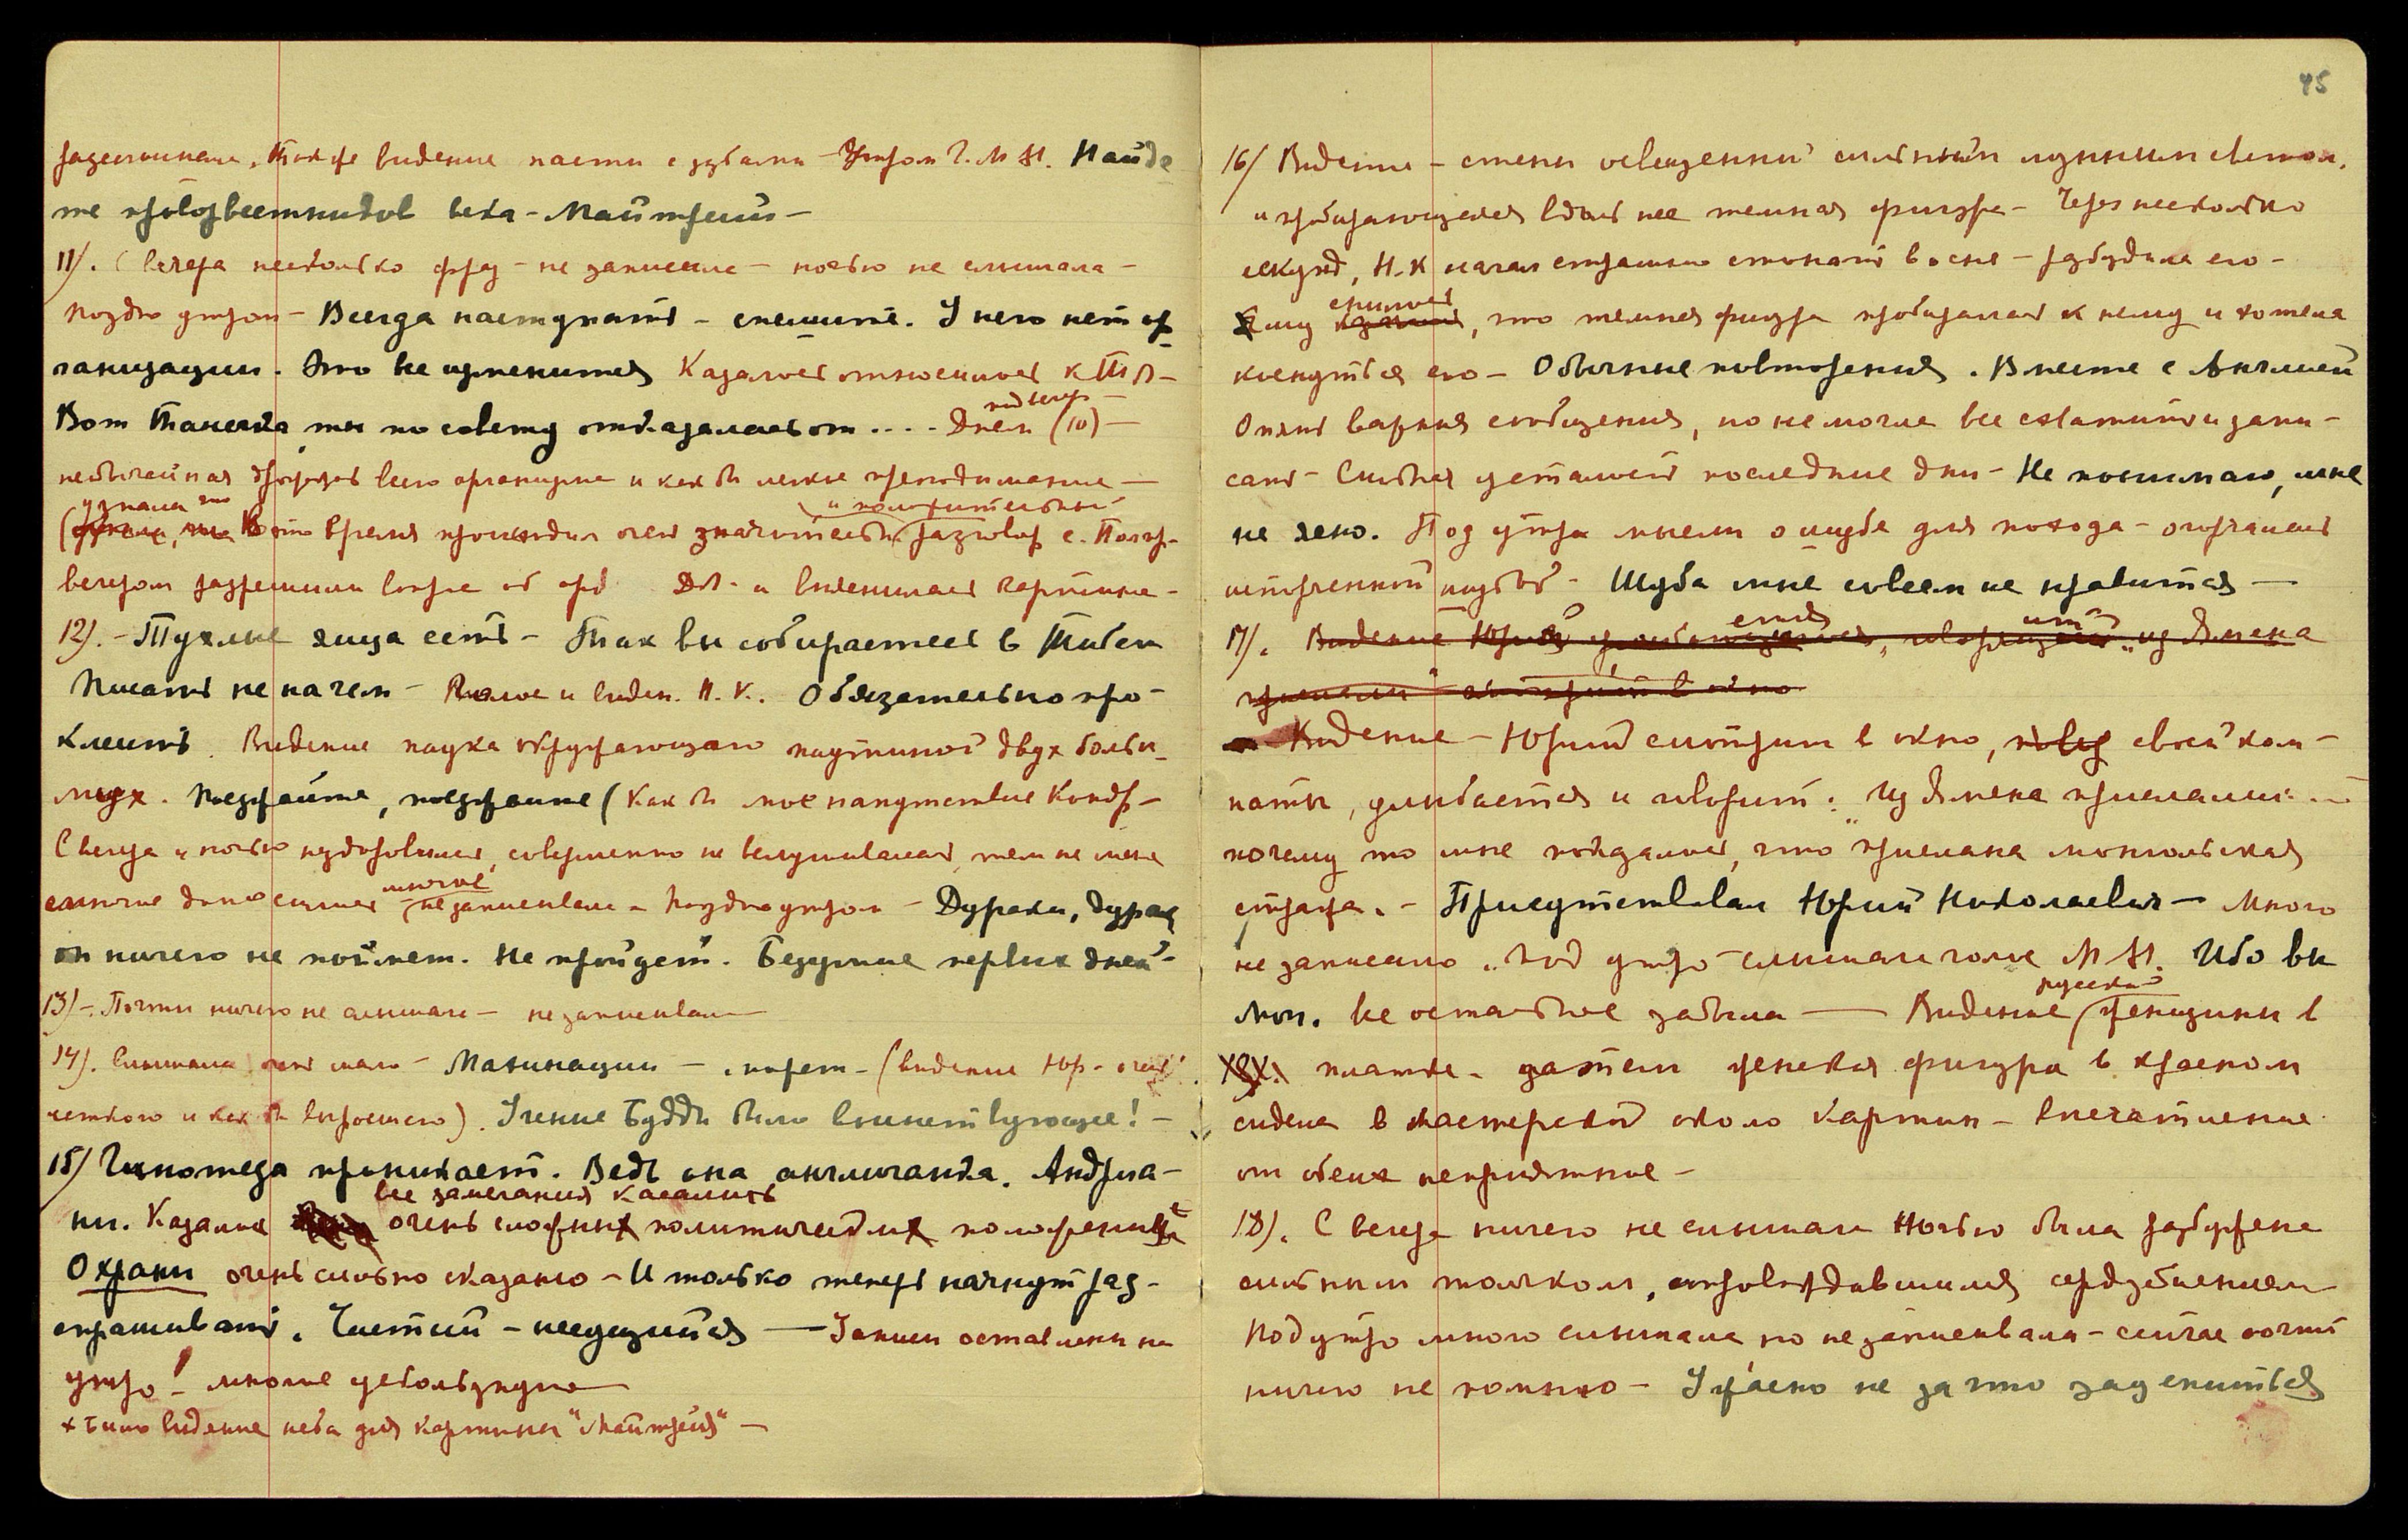 45
также видение пасти с зубами – Утром Г. М. М. Найде
те провозвестников века – Майтрейи –
11). С вечера несколько фраз – не записала – ночью не слышала –
поздно утром – Всегда наступать – спешите. У него нет ор
ганизации. Это не изменится Казалось относилось к
Вот ты по совету отказалась от .... Днем (10) –
необычайная всего организма и как бы легкое приподнимание –
(узнала что в это время происходил очень значительный разговор с
вечером разрешили вопрос об
12). – Тухлые яйца есть – Так вы собираетесь в Тибет
Писать не на чем – и виден. Н. К. Обязательно про-
клеить. Видение паука окружающего паутиной двух больш.
мух. Поезжайте, поезжайте (Как бы мое напутствие
С вечера и ночью нездоровилось, совершенно не вслушивалась, тем не менее
многое не записывала – поздно утром – Дураки, дурак
он ничего не поймет. Не пройдет. Безумие первых дней –
13) –. Почти ничего не слышала – не записывала
14). Слышала очень мало – Махинации – (видение Юр. – очень
четкого и как бы выросшего). Учение Будды было вышетвующее! –
15) Гипотеза проникает. Ведь она англичанка. Андриа-
все замечания касались
ни. Казалось очень сложных политических положений
Охраны очень сильно сказано – И только теперь начнут рас-
спрашивать. Чистый – – Записи оставлены на
утро! – многое ускользнуло
х было видение неба для картины "Майтрейя" –
16) Видение – стены освещенной сильным лунным светом.
и пробирающаяся вдоль нее темная фигура – Через несколько
секунд, Н. К. начал страшно стонать во сне – разбудила его –
снилось
Ему казалось, что темная фигура пробиралась к нему и хотела
коснуться его – Обычные повторения. Вместе с Англией
Опять важные сообщения, но не могла все схватить и запи-
сать – Сильная усталость последние дни – Не понимаю, мне
не ясно. Под утро мысли о шубе для похода – огорчалась
испорченной шубой – Шуба мне совсем не нравится –
17). Видение Юрий "из Ямена
прислали"
Видение – Юрий смотрит в окно, своей ком-
наты, улыбается и говорит: "Из Ямена прислали"
почему то мне показалось, что прислана монгольская
стража. – Присутствовал Юрий Николаевич – Много
не записано. Под утро слышала голос М. М. Ибо вы
Мои. Все остальное забыла – Видение русской женщины в
платке – затем женская фигура в красном
сидела в мастерской около картин – впечатление
от обеих неприятное –
18). С вечера ничего не слышала Ночью была разбужена
сильным толчком, сопровождавшимся сердцебиением
Под утро много слышала но не записывала – сейчас почти
ничего не помню – Ужасно не за что зацепиться